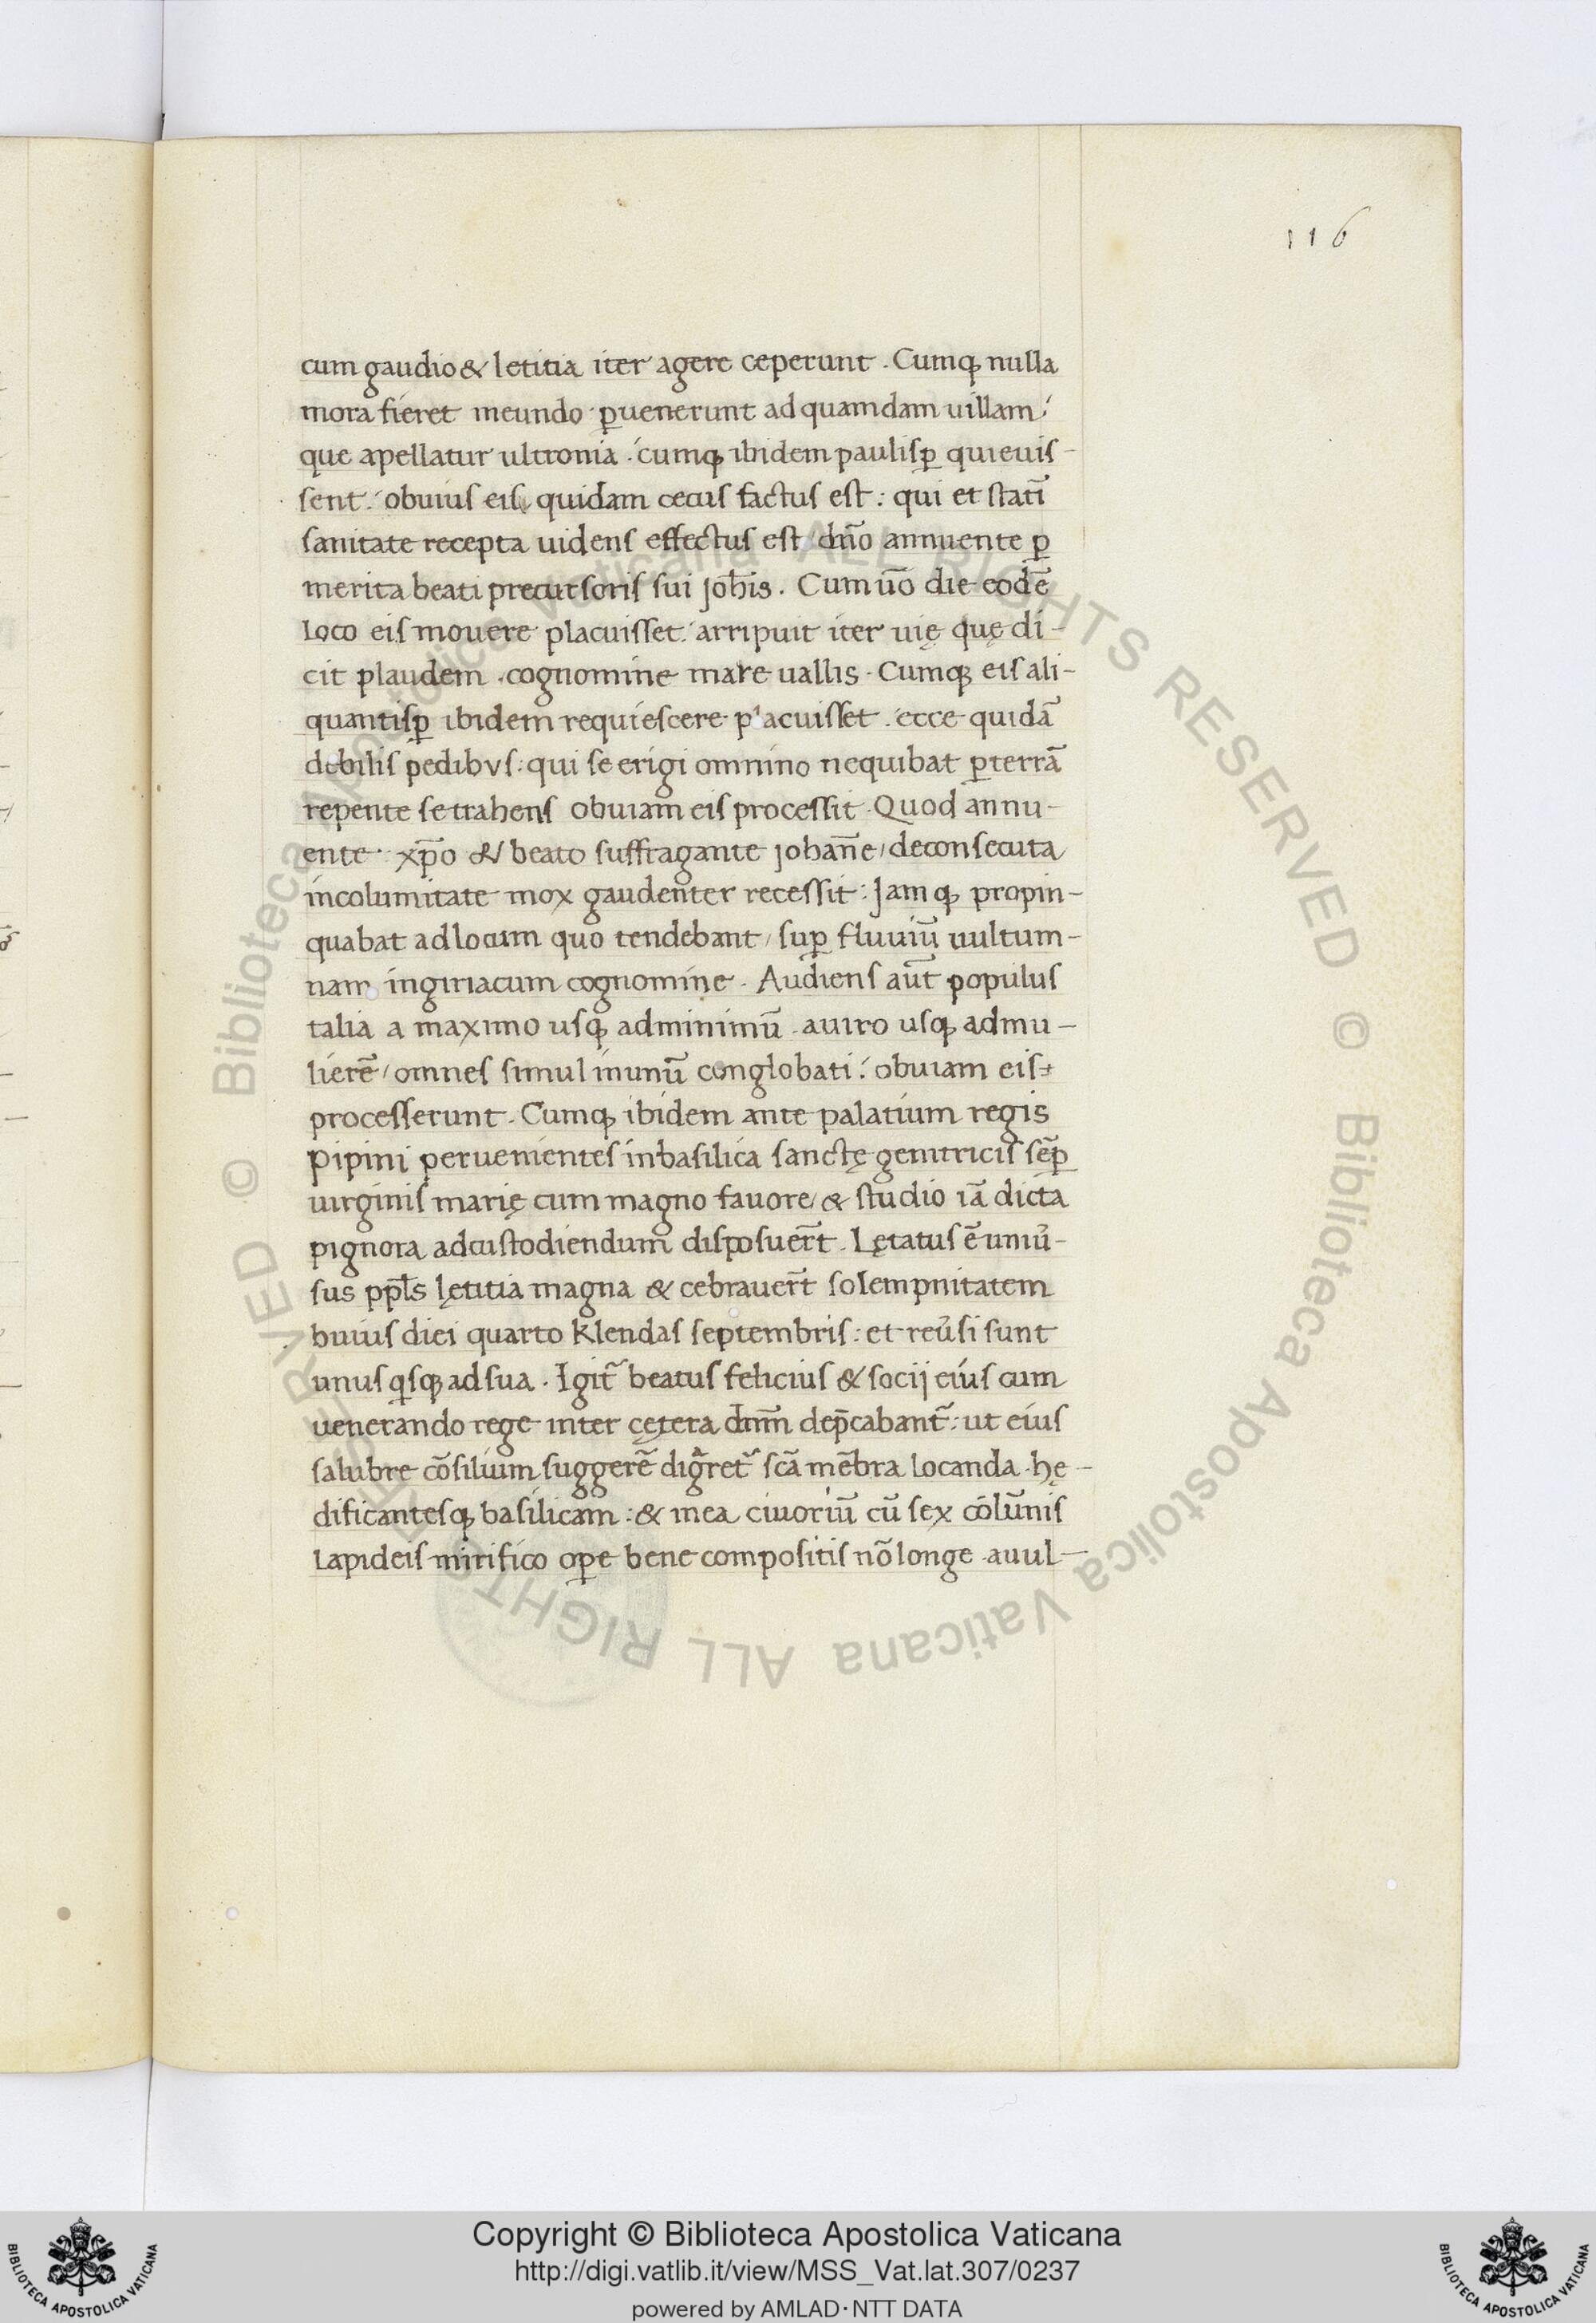 116
cum gaudio & letitia iter agere ceperunt . Cumqꝫ nulla
mora fieret meundo ꝑuenerunt ad quamdam uillam
que apellatur ultronia . cumqꝫ ibidem paulisꝑ quieuis-
sent . obuius eis quidam cecus factus est : qui et statī
sanitate recepta uidens effectus est / dn̄o annuente ꝑ
merita beati precursoris sui joh̄is . Cum ūo die eodē
Loco eis mouere placuisset . arripuit iter uię quę di-
cit plaudem . cognomine mare uallis . Cumqꝫ eis ali-
quantisꝑ ibidem requiescere placuisset . ecce quidā
debilis pedibus : qui se erigi omnino nequibat ꝑ terrā
repente se trahens obuiam eis processit . Quod annu-
ente xp̄o & beato suffragante johan̄e / deconsecuta
incolumitate mox gaudenter recessit : Jamqꝫ propin-
quabat ad locum quo tendebant / suꝑ fluuiū uultum-
nam ingiriacum cognomine . Audiens aūt populus
talia a maximo usqꝫ ad minimū . a uiro usqꝫ ad mu-
lierē / omnes simul in unū conglobati . obuiam eis
processerunt . Cumqꝫ ibidem ante palatium regis
pipini peruenientes in basilica sanctę genitricis sēꝑ
uirginis marię cum magno fauore / & studio iā dicta
pignora ad custodiendum disposuer̄t . Lętatus ē uniu̓-
sus pp̄ls lętitia magna & cebrauer̄t solempnitatem
huius diei quarto Klendas septembris : et reu̓si sunt
unus qisqꝫ ad sua . Igit̃ beatus felicius & socij eius cum
uenerando rege inter cętera dn̄m dep̄cabant̃ : ut eius
salubre cōsilium suggerē dignaret̃ scā mēbra locanda . hę-
dificantesqꝫ basilicam : & in ea ciuoriū cū sex colūnis
Lapideis mirifico oꝑe bene compositis nō longe . a uul-
Copyright © Biblioteca Apostolica Vaticana
http://digi.vatlib.it/view/MSS_Vat.lat.307/0237
powered by AMLAD·NTT DATA